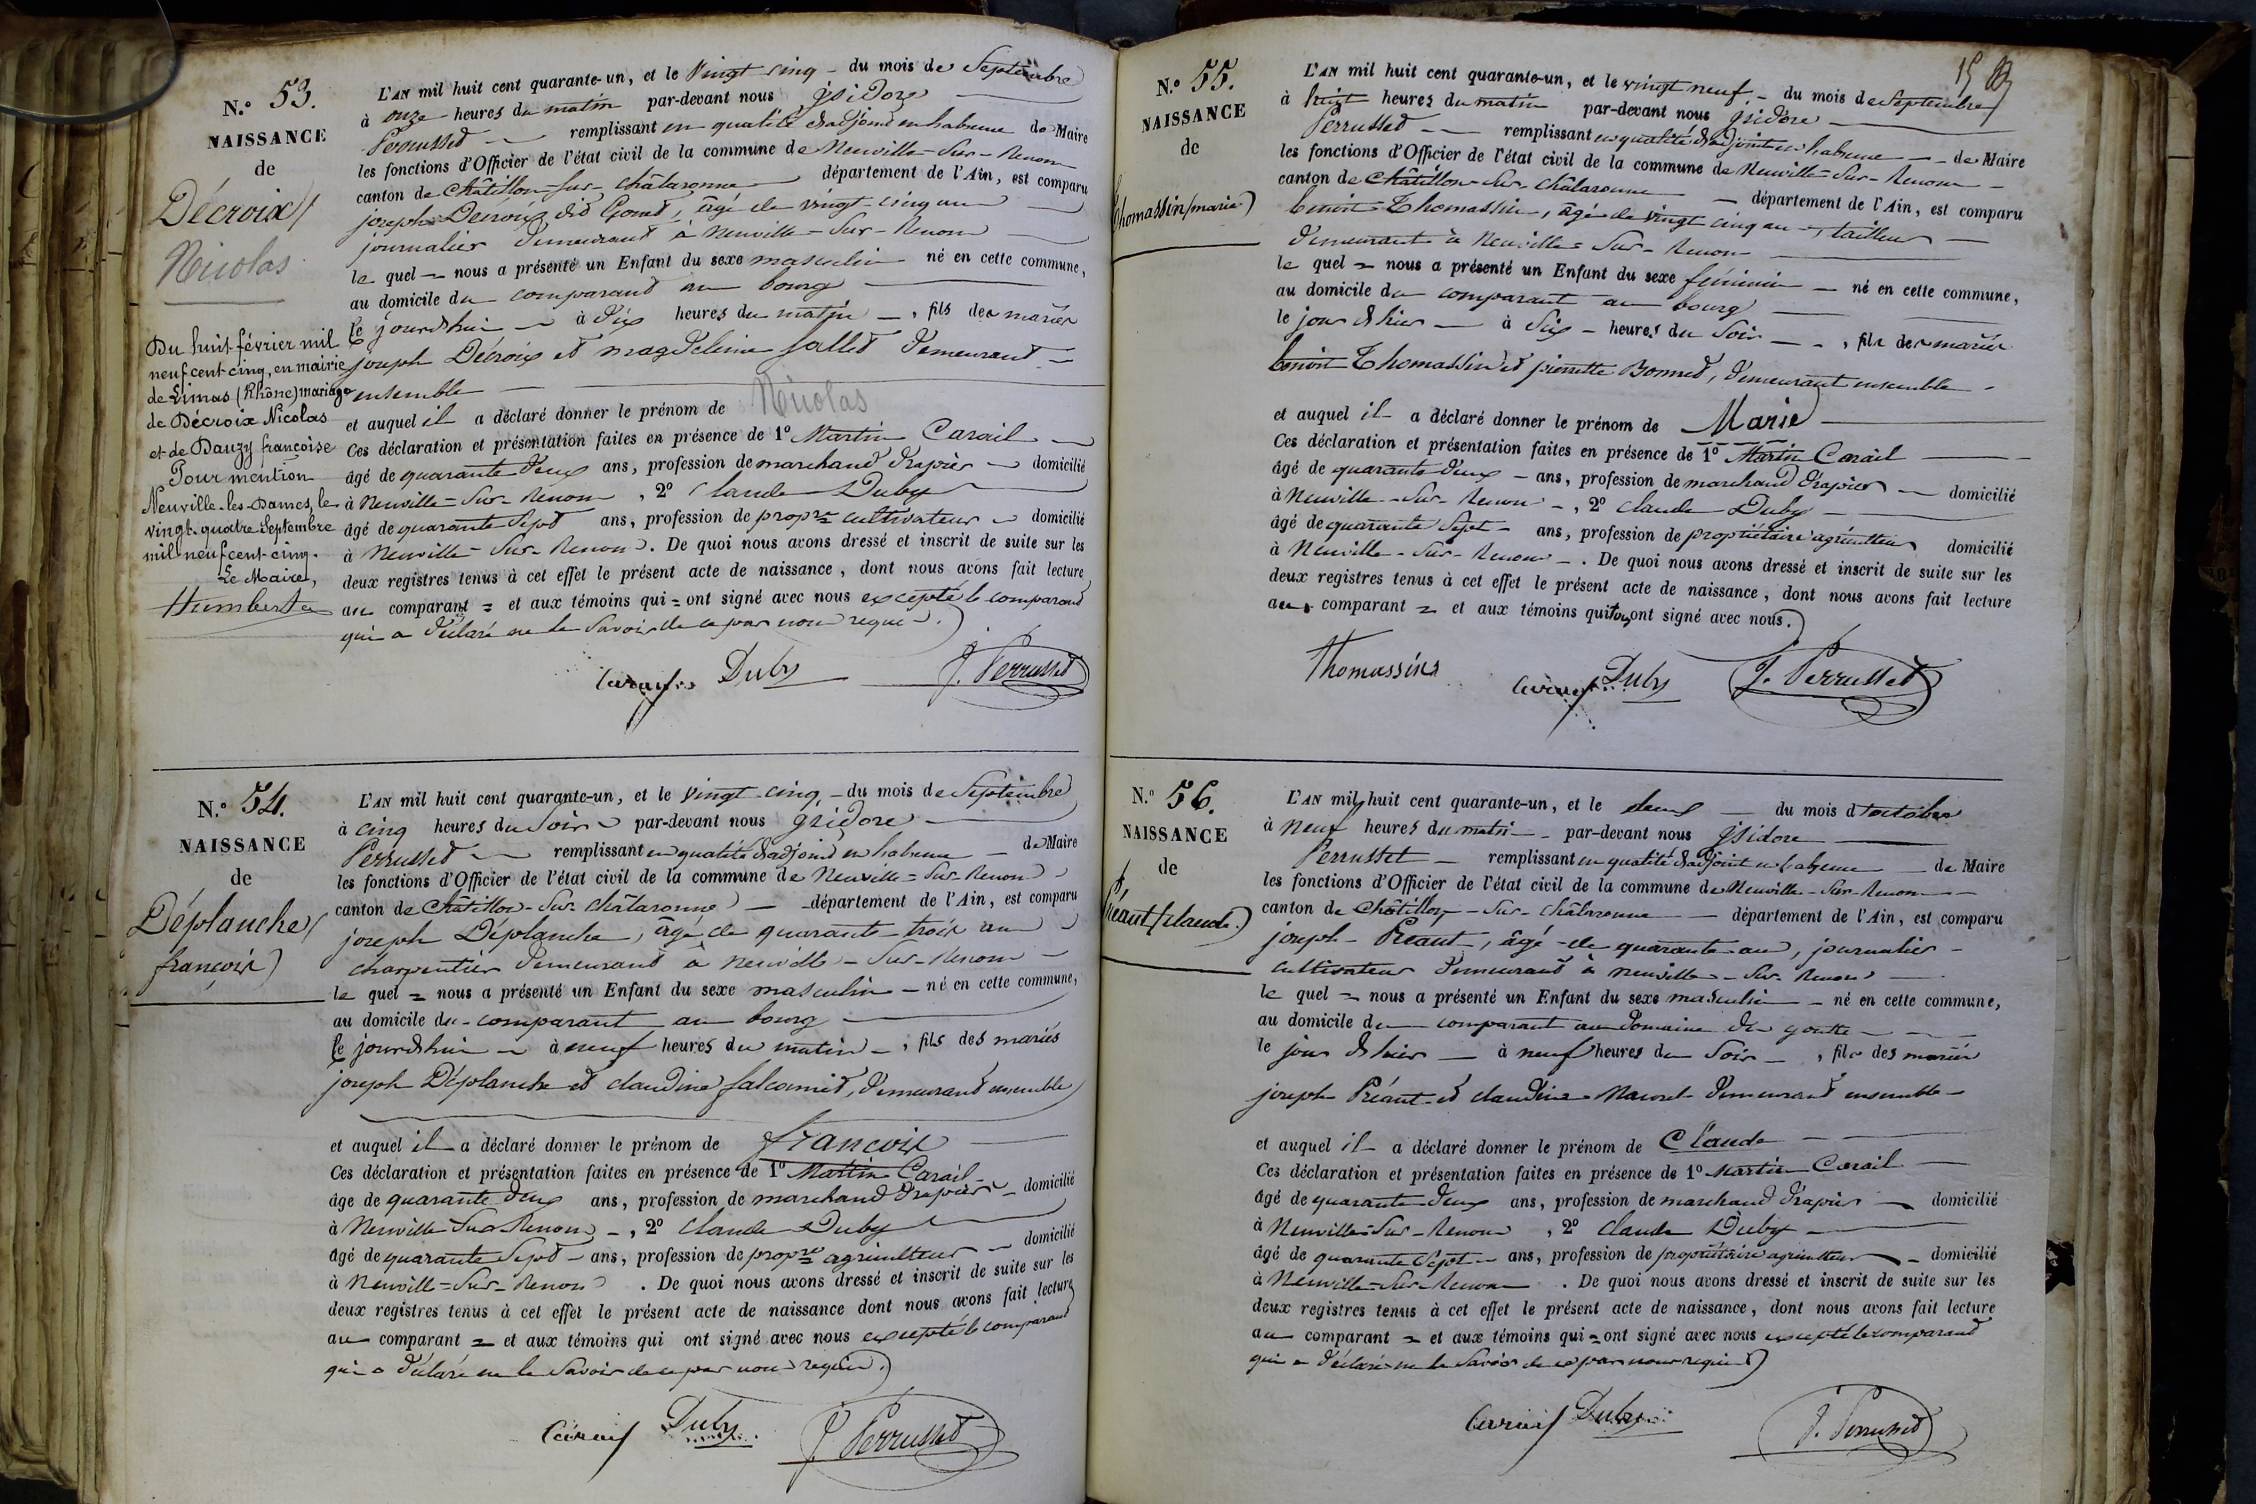 N.° 53.
NAISSANCE
de
Décroix
Nicolas
Du huit février mil
neuf cent cinq, en mairie
de Limas (Rhône) mariage
de Décroix Nicolas
et de Dauzy françoise
Pour mention
Neuville-les-Dames, le
vingt-quatre Septembre
mil neuf cent-cinq.
Le Maire,
Humbert
L'AN mil huit cent quarante-un, et le vingt cinq - du mois de Septembre
à onze heures du matin par-devant nous jsidore
Perrusset remplissant en qualité d'adjoint en l'absence de Maire
les fonctions d'Officier de l'état civil de la commune de Neuville-Sur-Renom
canton de Châtillon-sur-Châlaronne département de l'Ain, est comparu
joseph Decroix dit , âgé de vingt-cinq ans
journalier demeurant à Neuville-Sur-Renom
le quel nous a présenté un Enfant du sexe masculin né en cette commune,
au domicile du comparant au bourg
le jourd'hui à dix heures du matin, fils des mariés
joseph Décroix et magdeleine Sallet demeurant
ensemble
et auquel il a déclaré donner le prénom de Nicolas
Ces déclaration et présentation faites en présence de 1° Martin Carail
âgé de quarante deux ans, profession de marchand drapier domicilié
à Neuville-Sur-Renom, 2° Claude Duby
âgé de quarante Sept ans, profession de propre cultivateur domicilié
à Neuville-Sur-Renom. De quoi nous avons dressé et inscrit de suite sur les
deux registres tenus à cet effet le présent acte de naissance, dont nous avons fait lecture
au comparant = et aux témoins qui = ont signé avec nous excepté le comparant
qui a déclaré ne le Savoir de ce par nous requis.
Carail Duby J. Perrusset
N.° 54.
NAISSANCE
de
Déplanche
françois)
L'AN mil huit cent quarante-un, et le vingt-cinq - du mois de Septembre
à cinq heures du Soir par-devant nous jsidore
Perrusset remplissant en qualité d'adjoint en l'absence de Maire
les fonctions d'Officier de l'état civil de la commune de Neuville-Sur-Renom
canton de Châtillon-Sur-Châlaronne département de l'Ain, est comparu
joseph Déplanche, âgé de quarante-trois ans
charpentier demeurant à Neuville-Sur-Renom
le quel = nous a présenté un Enfant du sexe masculin né en cette commune,
au domicile du comparant au bourg
le jourd'hui à neuf heures du matin, fils des mariés
joseph Déplanche et claudine falconnet, demeurant ensemble
et auquel il a déclaré donner le prénom de françois
Ces déclaration et présentation faites en présence de 1° Martin Carail
âge de quarante deux ans, profession de marchand drapier domicilié
à Neuville Sur Renom, 2° Claude Duby
âgé de quarante Sept ans, profession de propre agriculteur domicilié
à Neuville=Sur-Renom. De quoi nous avons dressé et inscrit de suite sur les
deux registres tenus à cet effet le présent acte de naissance dont nous avons fait lecture
au comparant = et aux témoins qui ont signé avec nous excepté le comparant
qui a déclaré ne le Savoir de ce par nous requis.
Carail Duby J. Perrusset
15
N.° 55.
NAISSANCE
de
Thomassin (marie)
L'AN mil huit cent quarante-un, et le vingt neuf - du mois de Septembre
à huit heures du matin par-devant nous jsidore
Perrusset remplissant en qualité d'adjoint en l'absence de Maire
les fonctions d'Officier de l'état civil de la commune de Neuville-Sur-Renom
canton de Châtillon-Sur-Châlaronne département de l'Ain, est comparu
benoit Thomassin, âgé de vingt cinq ans, tailleur
demeurant à Neuville-Sur-Renom
le quel = nous a présenté un Enfant du sexe féminin né en cette commune,
au domicile du comparant au bourg
le jour d'hier à Six heures du Soir, fils des mariés
benoit Thomassin et pierrette Bonnet, demeurant ensemble
et auquel il a déclaré donner le prénom de Marie
Ces déclaration et présentation faites en présence de 1° Martin Carail
âgé de quarante deux ans, profession de marchand drapier domicilié
à Neuville-Sur-Renom, 2° claude Duby
âgé de quarante Sept ans, profession de propriétaire agriculteur domicilié
à Neuville-Sur-Renom. De quoi nous avons dressé et inscrit de suite sur les
deux registres tenus à cet effet le présent acte de naissance, dont nous avons fait lecture
au comparant = et aux témoins qui tous ont signé avec nous.
Thomassin Carail Duby J. Perrusset
N.° 56.
NAISSANCE
de
Préaut (claude)
L'AN mil huit cent quarante-un, et le deux du mois d'octobre
à neuf heures du matin par-devant nous jsidore
Perrusset remplissant en qualité d'adjoint en l'absence de Maire
les fonctions d'Officier de l'état civil de la commune de Neuville-Sur-Renom
canton de Châtillon-Sur-Châlaronne département de l'Ain, est comparu
joseph Préaut, âgé de quarante ans, journalier
cultivateur demeurant à Neuville-Sur-Renom
le quel = nous a présenté un Enfant du sexe masculin né en cette commune,
au domicile du comparant au Domaine du goutte
le jour d'hier à neuf heures du Soir, fils des mariés
joseph Préaut et claudine demeurant ensemble
et auquel il a déclaré donner le prénom de Claude
Ces déclaration et présentation faites en présence de 1° Martin Carail
âgé de quarante deux ans, profession de marchand drapier domicilié
à Neuville-Sur-Renom, 2° claude Duby
âgé de quarante Sept ans, profession de propriétaire agriculteur domicilié
à Neuville-Sur-Renom. De quoi nous avons dressé et inscrit de suite sur les
deux registres tenus à cet effet le présent acte de naissance, dont nous avons fait lecture
au comparant = et aux témoins qui = ont signé avec nous excepté le comparant
qui a déclaré ne le Savoir de ce par nous requis)
Carail Duby J. Perrusset